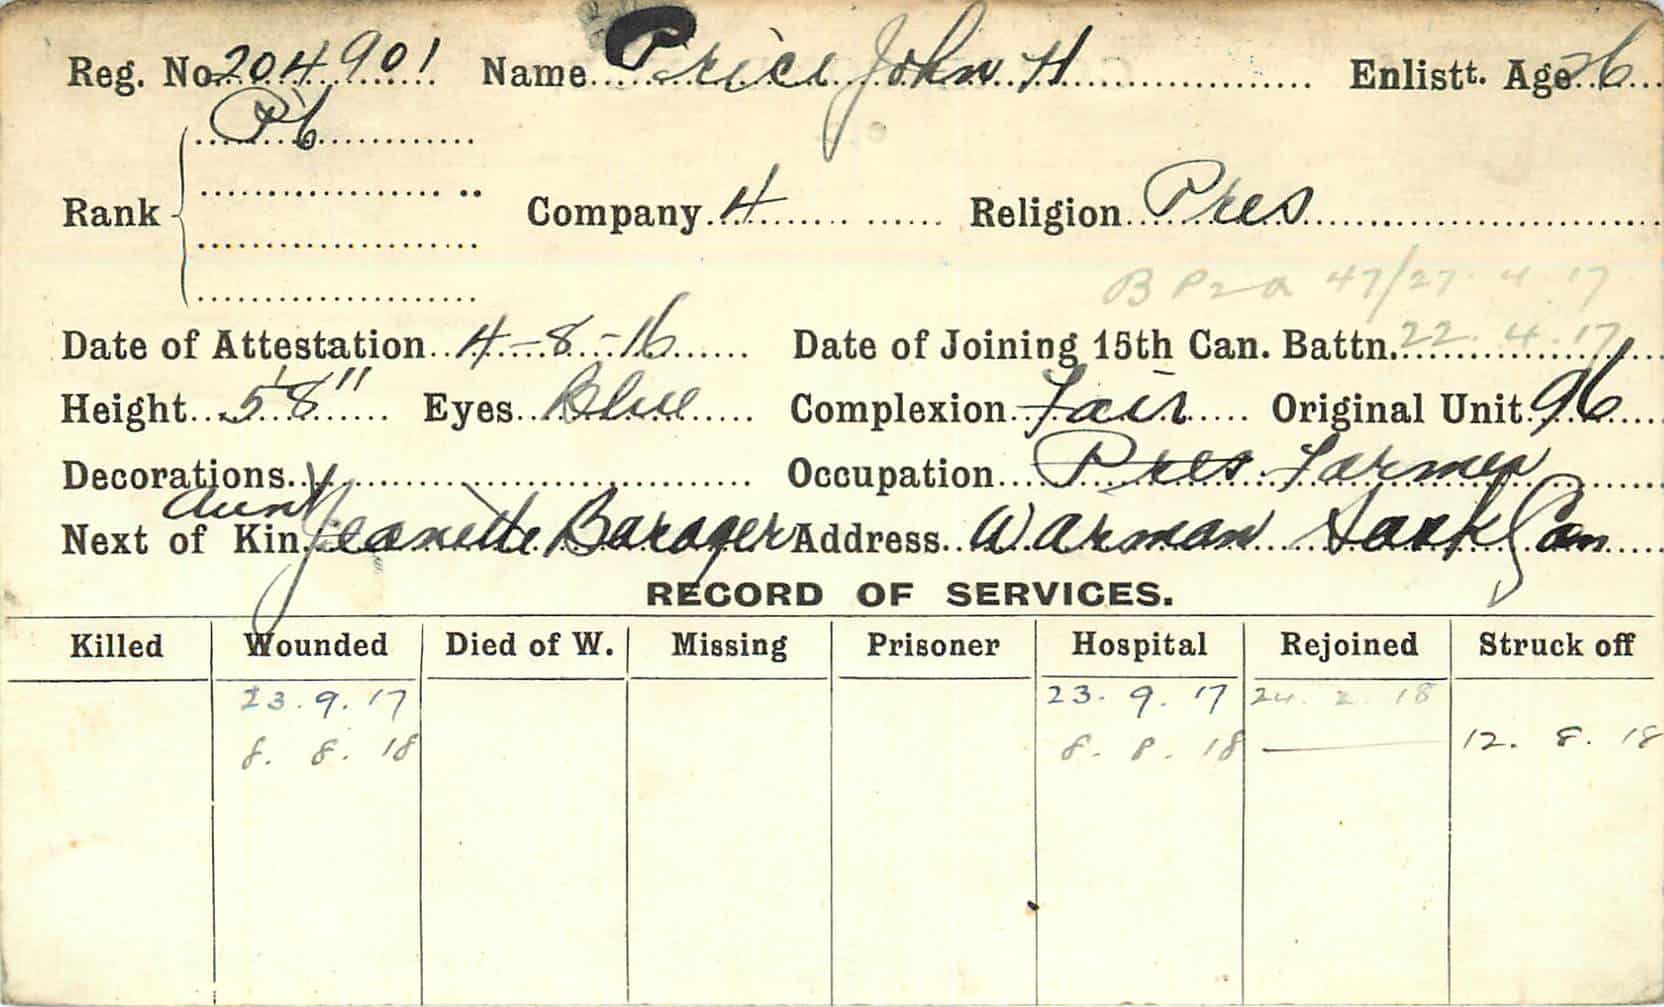 Reg. No. 204901 Name Price John H Enlistt. Age 26
Pte
Rank Company 4 Religion Pres
47/27.4.17
Date of Attestation 4-8-16 Date of Joining 15th Can. Battn. 22.4.17
Height 5'8" Eyes Blue Complexion Fair Original Unit 96
Decorations Occupation Pres. Farmer
Aunt
Next of Kin Jeanette Barager Address Warman Sask Can
RECORD OF SERVICES.
Killed Wounded Died of W. Missing Prisoner Hospital Rejoined Struck off
23.9.17 23.9.17 24.2.18
8.8.18 8.8.18 12.8.18